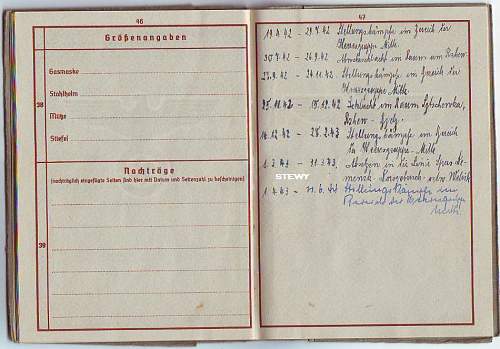 46
Größenangaben
Gasmaske
Stahlhelm
38
Mütze
Stiefel
Nachträge
(nachträglich eingefügte Seiten sind hier mit Datum und Seitenzahl zu bescheinigen)
39
47
19.4.42 - 29.7.42 Stellungskämpfe im Bereich der
Heeresgruppe Mitte.
30.7.42 - 26.9.42 Abwehrschlacht im Raum um
27.9.42 - 24.11.42 Stellungskämpfe im Bereich der
Heeresgruppe Mitte.
25.11.42 - 15.12.42 Schlacht im Raum Sytschewka,
16.12.42 - 28.2.43 Stellungskämpfe im Bereich
der Heeresgruppe Mitte
1.3.43 - 31.3.43 in die Linie Spas-
STEWY
1.4.43 - Stellungskämpfe im
der Heeresgruppe
Mitte